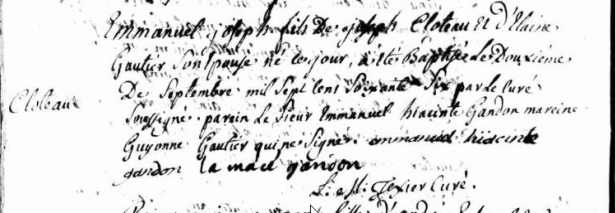 Emmanuel joseph fils De joseph Cloteau Et d'Elaine
Gautier Son Epouse né ce jour, a été Baptisé Le Douxiéme
Cloteau
De Septembre mil Sept Cens Soixante Six par Le Curé
Soussigné. parein Le Sieur Emmanuel hiacinte Gandon mareine
Guyonne Gautier qui ne Signe. emmanuel hiacinte
gandon la mace gandon
Texier Curé.